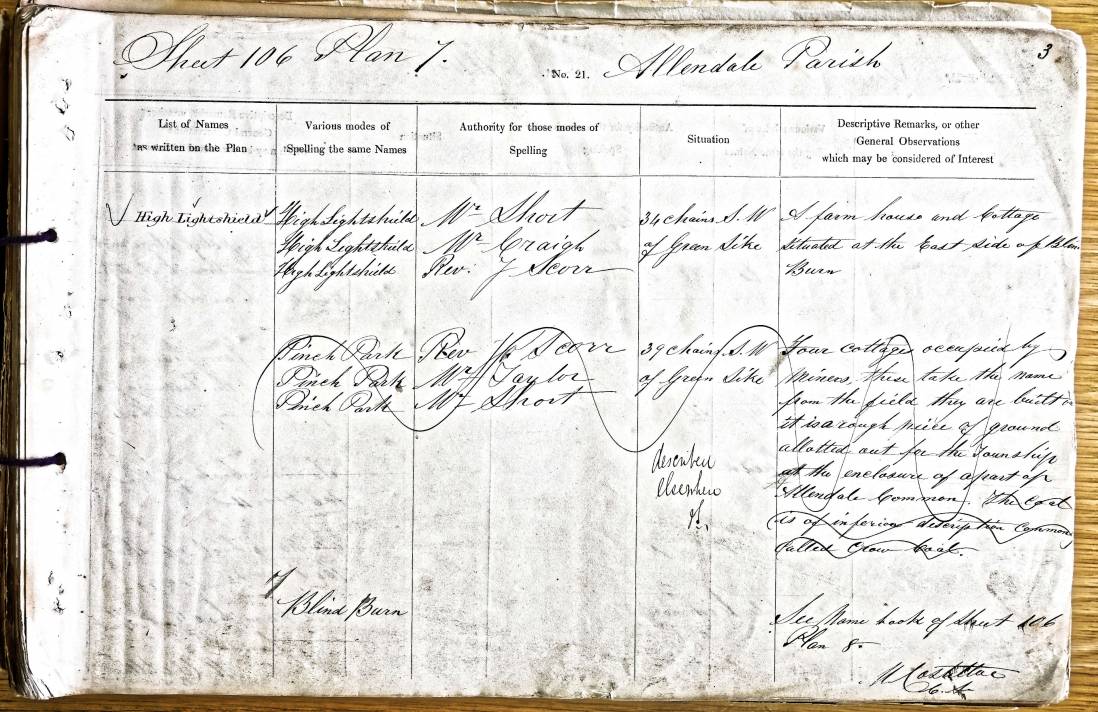 3
Sheet 106 Plan 7. No. 21. Allendale Parish
List of Names
as written on the Plan
Various modes of
Spelling the same Names
Authority for those modes of
Spelling
Situation
Descriptive Remarks, or other
General Observations
which may be considered of Interest
High Lightshield
High Lightshield
High Lightshield
High Lightshield
Mr. Short
Mr Craigh
Rev: J Scorr
34 chains S.W
of Green Sike
A farm house and Cottage
situated at the East side of Blind
Burn
Pinch Park
Pinch Park
Pinch Park
Rev J Scorr
Mr Taylor
Mr Short
39 chains S.W
of Green Sike
described
Elsewhere
Four cottages occupied by
miners, these take the name
from the field they are built on
it is a rough piece of ground
allotted out for the Township
at the enclosure of a part of
Allendale Common. The Coal
is of inferior description commonly
called Crow Coal.
Blind Burn
See Name book of Sheet 106
Plan 8.